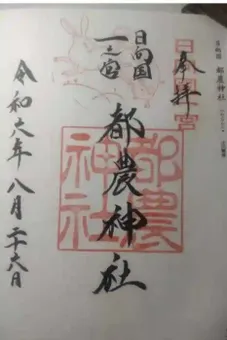 日向國 都農神社
奉拝
日向国一之宮
日向国
一之宮
都農神社
都農神社
令和六年八月二十六日